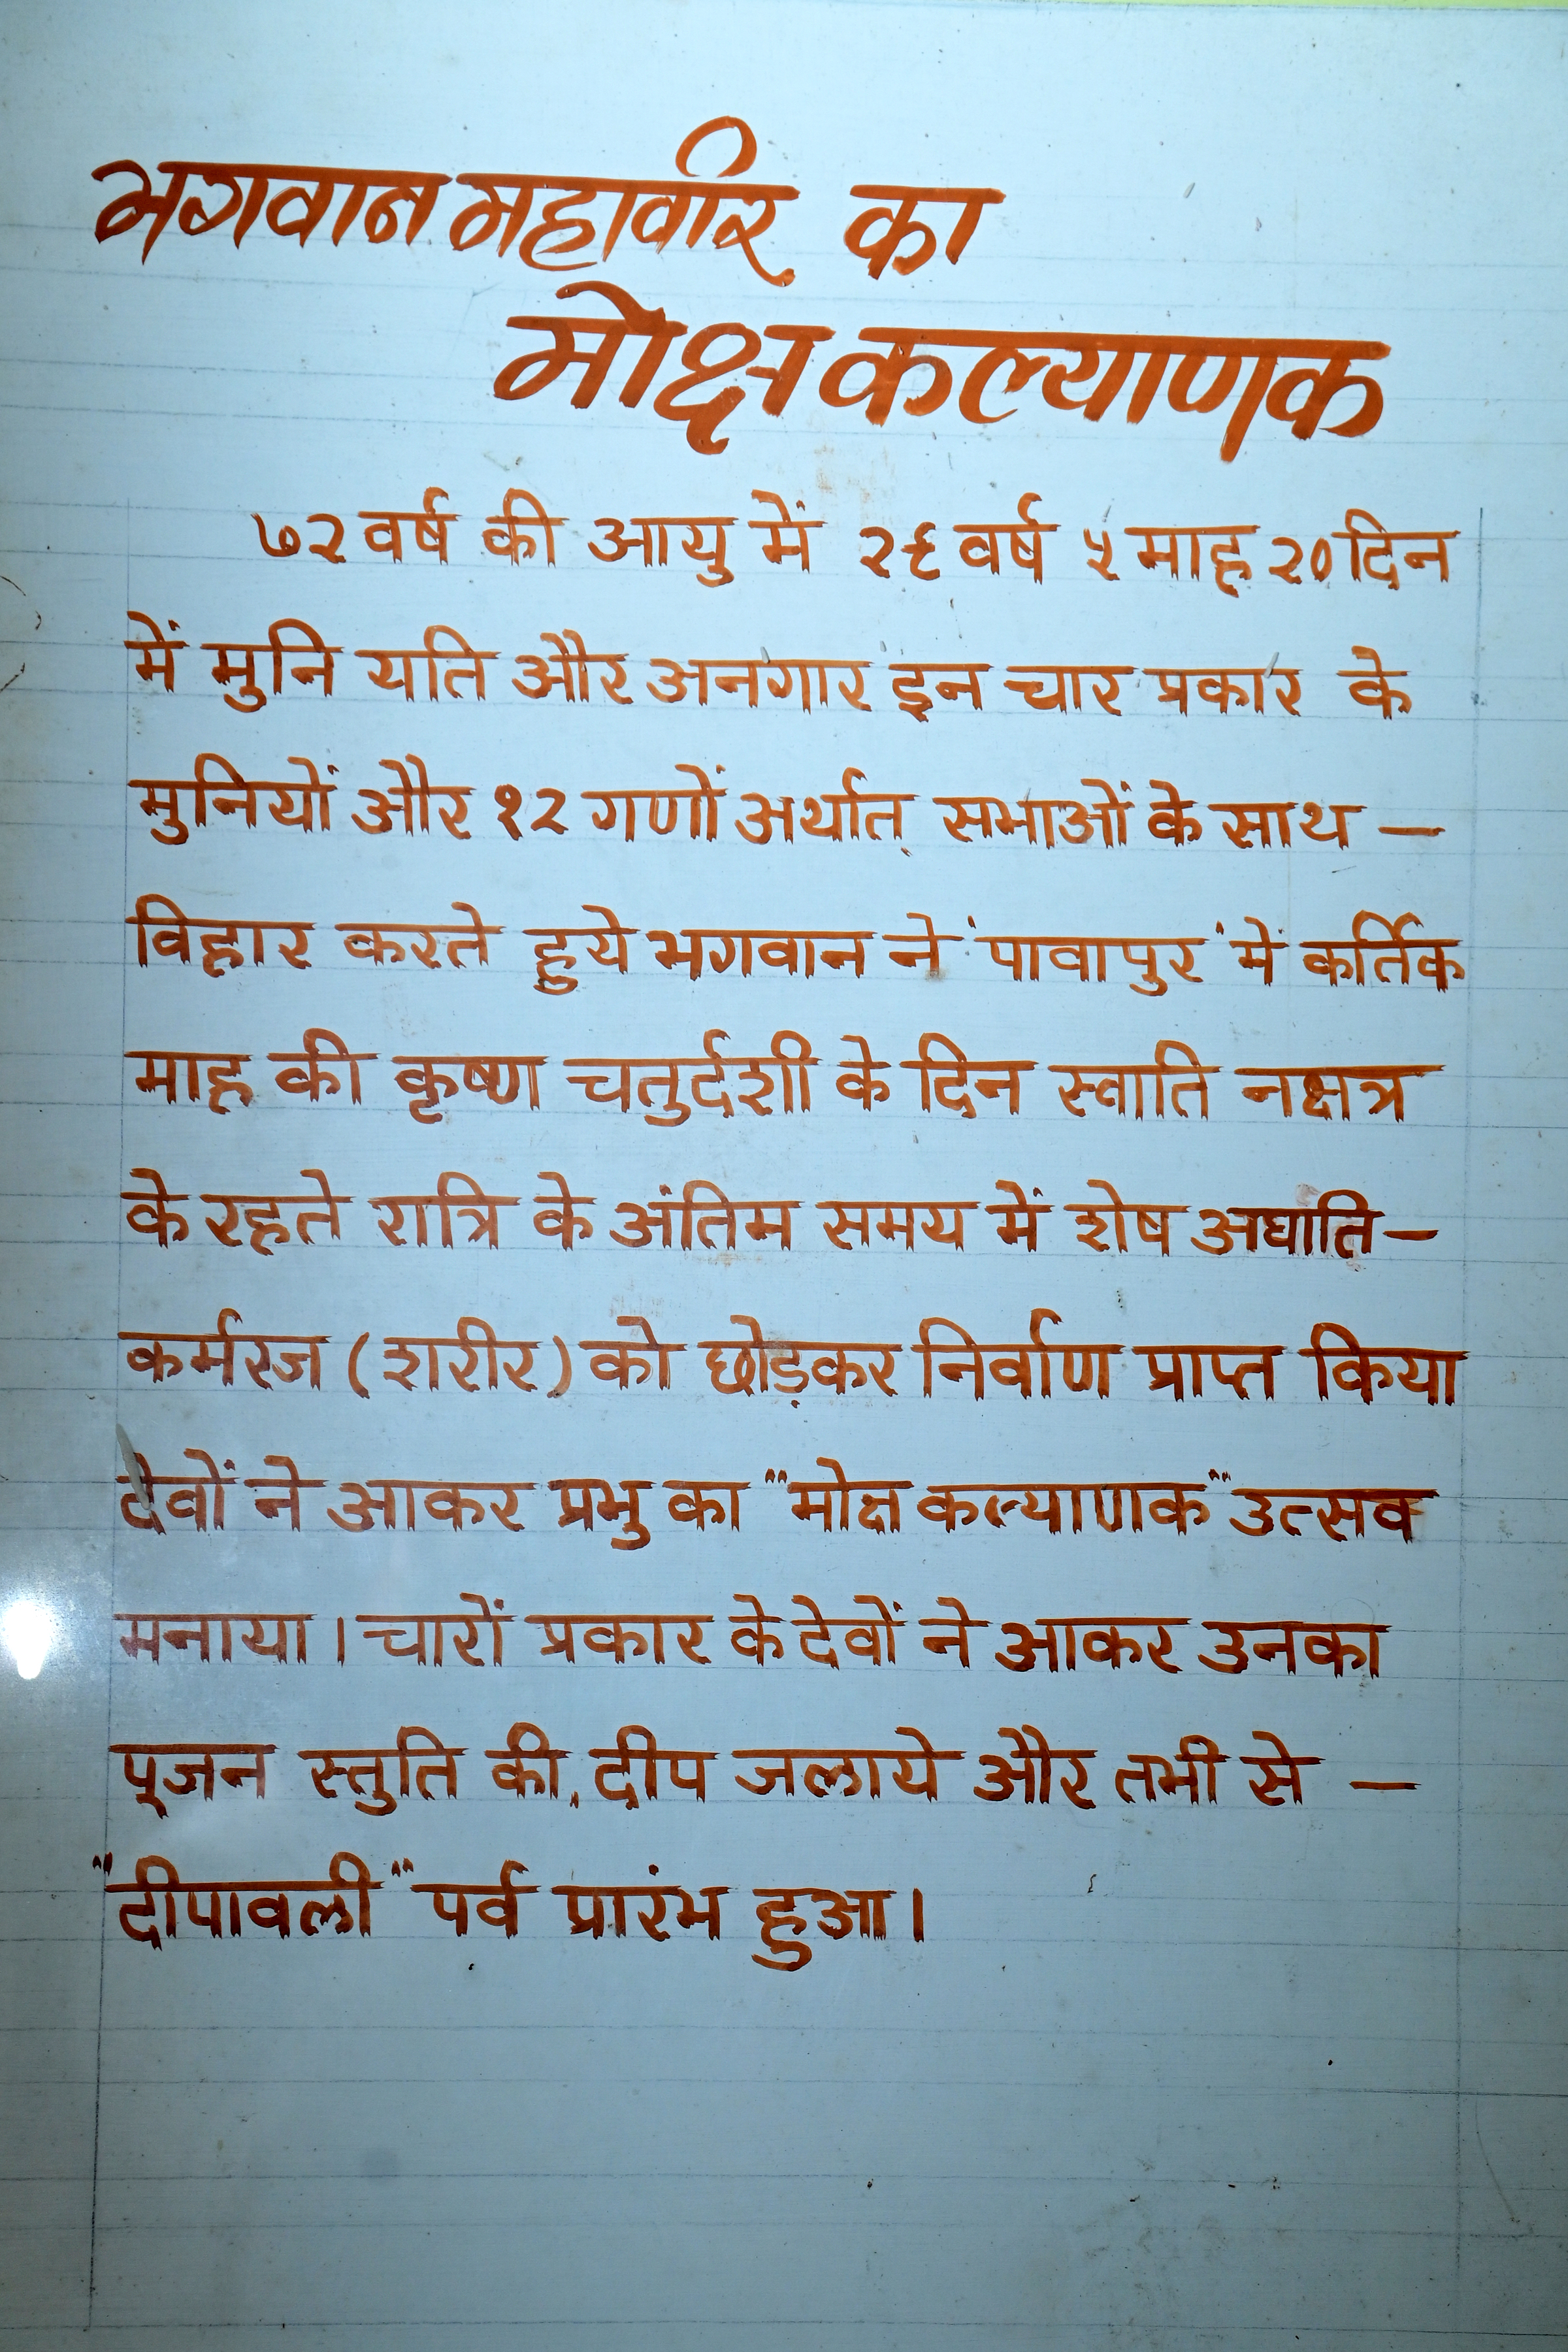 भगवान महावीर का
मोक्ष कल्याणक
७२ वर्ष की आयु में २९ वर्ष ५ माह २० दिन
में मुनि यति और अनगार इन चार प्रकार के
मुनियों और १२ गणों अर्थात् सभाओं के साथ –
विहार करते हुये भगवान ने 'पावापुर' में कर्तिक
माह की कृष्ण चतुर्दशी के दिन स्वाति नक्षत्र
के रहते रात्रि के अंतिम समय में शेष अघाति –
कर्मरज (शरीर) को छोड़कर निर्वाण प्राप्त किया
देवों ने आकर प्रभु का "मोक्ष कल्याणक" उत्सव
मनाया । चारों प्रकार के देवों ने आकर उनका
पूजन स्तुति की, दीप जलाये और तभी से –
"दीपावली" पर्व प्रारंभ हुआ ।